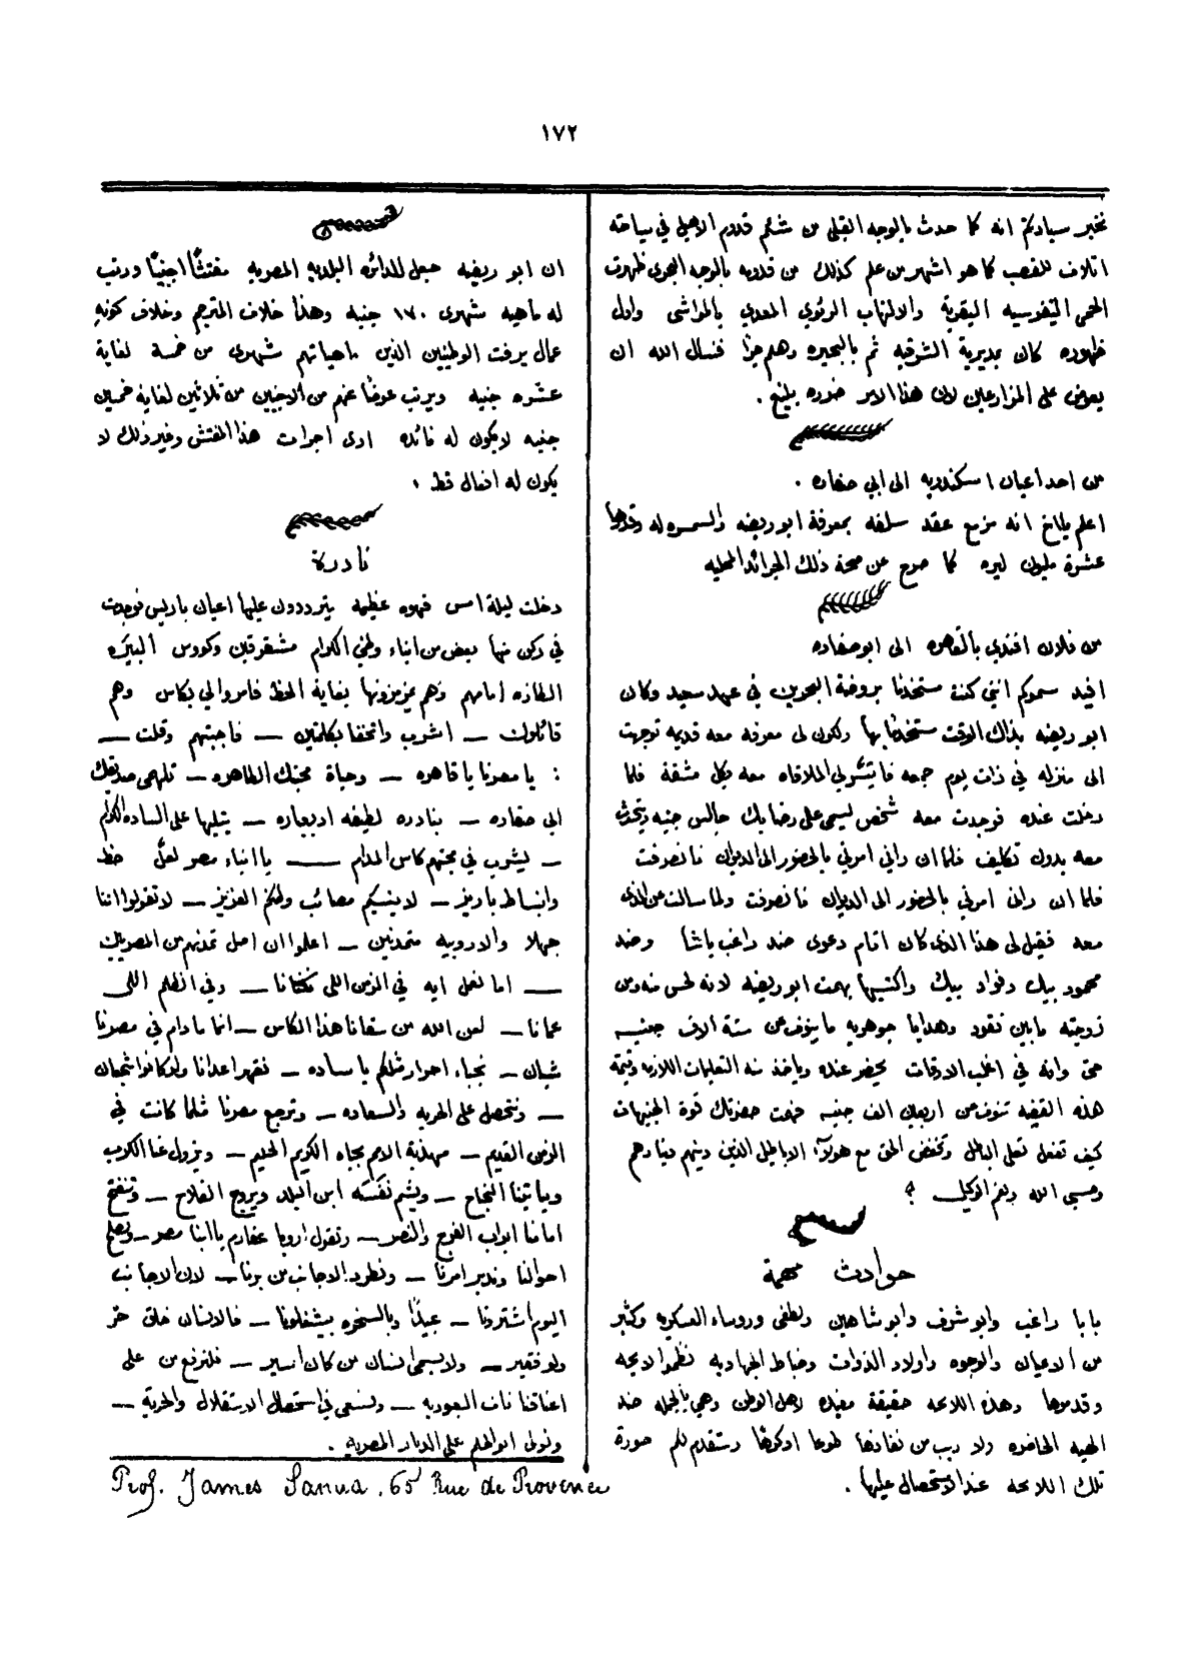 ١٧٢
نخبر سيادتكم انه كما حدث بالوجه القبلي من شئم قدوم الاهيل في سياحته
اتلاف للقصب كما هو اشهر من علم كذلك من قدومه بالوجه البحري ظهرت
الحمى التيفوسيه البقرية والالتهاب الرئوي المعدي بالمواشي واول
ظهوره كان بمديرية الشرقيه ثم بالبحيره وهلم جرا فنسال الله ان
يعوض على المزارعين لان هذا الامر ضرره بليغ .
من احد اعيان اسكندريه الى ابي صفاره .
اعلم يا اخ انه مزمع عقد سلفه بمعرفة ابو ريضه والسمسره له وقدرها
عشرة مليون ليره كما صرح عن صحة ذلك الجرائد المحليه
من فلان افندي بالقاهره الى ابو صفاره
افيد سموكم انني كنت مستخدما بروضة البحرين في عهد سعيد وكان
ابو ريضه بذاك الوقت مستخدما بها ولكون لي معرفه معه قديمه توجهت
الى منزله في ذات يوم جمعه فما تيسر لي الملاقاه معه وبكل مشقة فلما
دخلت عنده فوجدت معه شخص ليسمى على رضا بك جالس جنبه ويتحدث
معه بدون تكليف فلما ان راني امرني بالحضور الى الديوان فانصرفت
فلما ان راني امرني بالحضور الى الديوان فانصرفت ولما سالت عن الذي
معه فقيل لي هذا الذي كان اقام دعوى ضد راغب باشا وضد
محمود بيك وفواد بيك واكتسبها بهمت ابو ريضه لانه لحس منه ومن
زوجته ما بين نقود وهدايا جوهريه ما ينوف عن ستة الاف جنيه
حتى وانه في اغلب الاوقات يحضر عنده وياخذ منه التعليمات اللازمه وقيمة
هذه القضيه تنوف عن اربعين الف جنيه فهمت حضرتك قوة الجنيهات
كيف تفعل تعلي الباطل وتخفض الحق مع هولآء الاباطيل الذين دينهم دينارهم
وحسبي الله ونعم الوكيل ؟
حوادث مهمة
بابا راغب وابو شرف وابو شاهين ولطفى وروساء العسكريه وكثير
من الاعيان والوجوه واولاد الذوات وضباط الجهاديه نظموا لايحه
وقدموها وهذه اللايحه حقيقة مفيده لاهل الوطن وهي بالجمله ضد
الهيه الحاضره ولا ريب من نفاذها طوعا او كرها وستقدم لكم صورة
تلك اللايحه عند الاستحصال عليها .
ان ابو ريضه جعل للدائره البلديه المصريه مفتشاً اجنبيًا ورتب
له ماهيه شهرى ١٧٠ جنيه وهذا خلاف المترجم وخلاف كونه
عمال يرفت الوطنيين الذين ماهياتهم شهرى من خمسة لغاية
عشره جنيه ويرتب عوضا عنهم من الاجنبيين من ثلاثين لغاية خمسين
جنيه لا يكون له فائده ادى اجرات هذا المفتش وغير ذلك لا
يكون له افعال قط .
نادرة
دخلت ليلة امس قهوه عظيمه يترددون عليها اعيان باريس فوجدت
في ركن منها بعض من ابناء وطني الكرام مشقرقين وكووس البيره
الطازه امامهم وهم يمزمزونها بغاية الحظ فامروا لي بكاس وهم
قائلون — اشرب واتحفنا بكلمتين — فاجبتهم وقلت —
: يا مصرنا يا قاهره — وحياة محبتك الطاهره — تلهمى صديقك
ابى صفاره — بنادره لطيفه او بعباره — يتليها على الساده الكرام
— ليشرب في محبتهم كاس المدام — يا ابناء مصر لعلّ حظ
وانبساط باريز — لا ينسيكم مصائب وطنكم العزيز — لا تقولوا اننا
جهلا والاروبيه متمدنين — اعلموا ان اصل تمدنهم من المصريين
— اما نعمل ايه في الزمن اللى نكتنا — وفي الظلم اللى
عمانا — لعن الله من سقانا هذا الكاس — انما ما دام في مصرنا
شبان — نجباء احرار مثلكم يا ساده — نقهر اعدانا ولو كانوا شجعان
— ونتحصل على الحريه والسعاده — وترجع مصرنا مثلما كانت في
الزمن القديم — مهذبة الامم بجاه الكريم الحليم — وتزول عنا الكروب
وياتينا النجاح — ويشم نفسه ابن البلد ويروج الفلاح — وتنفتح
امامنا ابواب الفرج والنصر — وتقول اروبا عفارم يا ابنا مصر — ونصلح
احوالنا وندبر امرنا — ونطرد الاجانب من برنا — لان الاجانب
اليوم اشترونا — عبيدًا وبالسخره بيشغلونا — فالانسان خلق حرّ
ولو فقير — ولا يسمى انسان من كان اسير — فلنرفع من على
اعناقنا ناف العبوديه — ونسعى في استحصال الاستقلال والحرية —
ونولى ابو الحلم على الديار المصريه .
Prof. James Sanua. 65 Rue de Provence